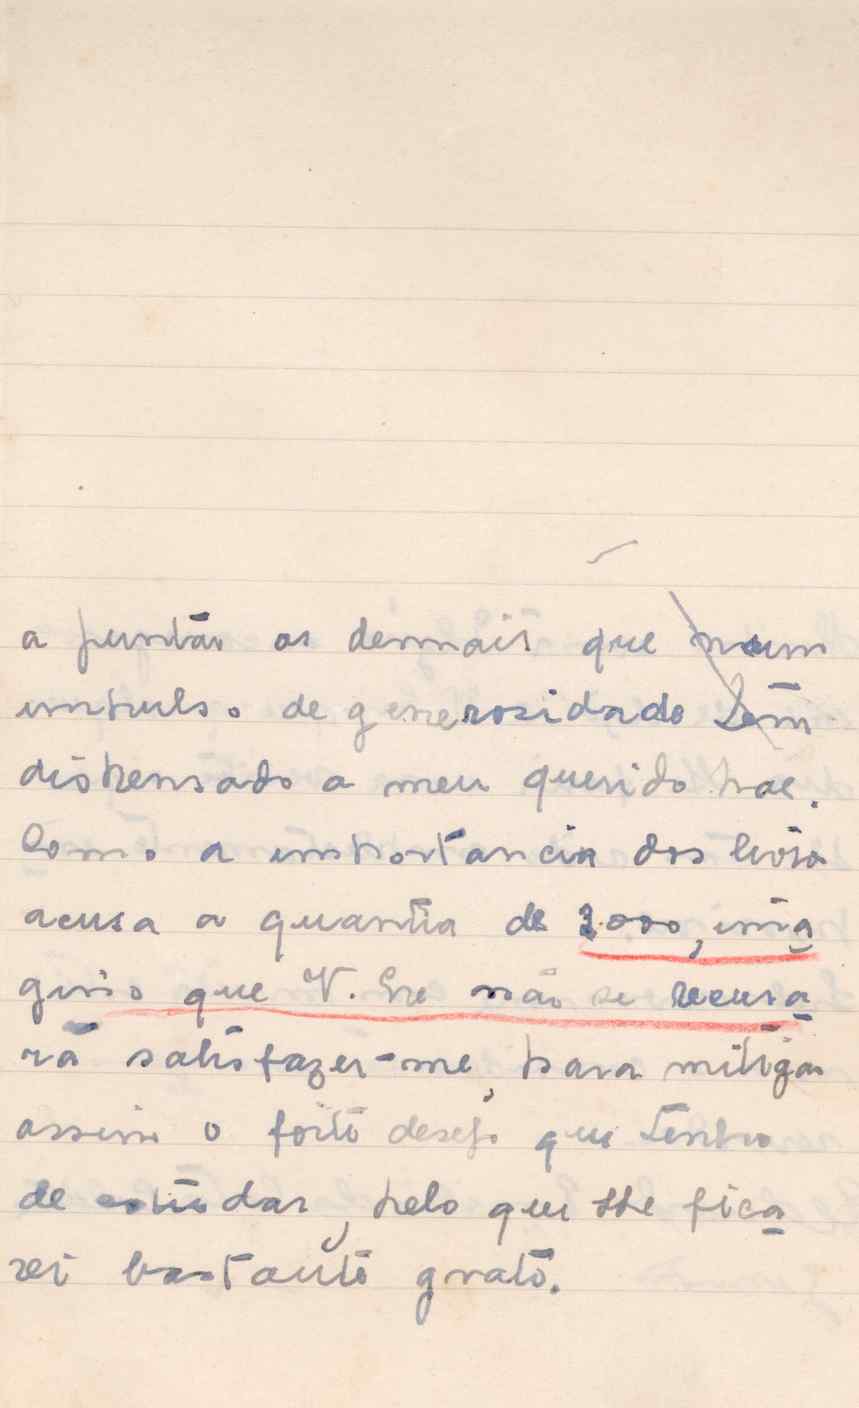 a juntar os demais que num
impulso de generosidade têm
dispensado a meu querido pae.
Como a importancia dos livros
acusa a quantia de 3.000, ima
gino que V. Exe não se recusa
rá satisfazer-me, para mitigar
assim o forte desejo que tenho
de estudar, pelo que lhe fica
rei bastante grato.